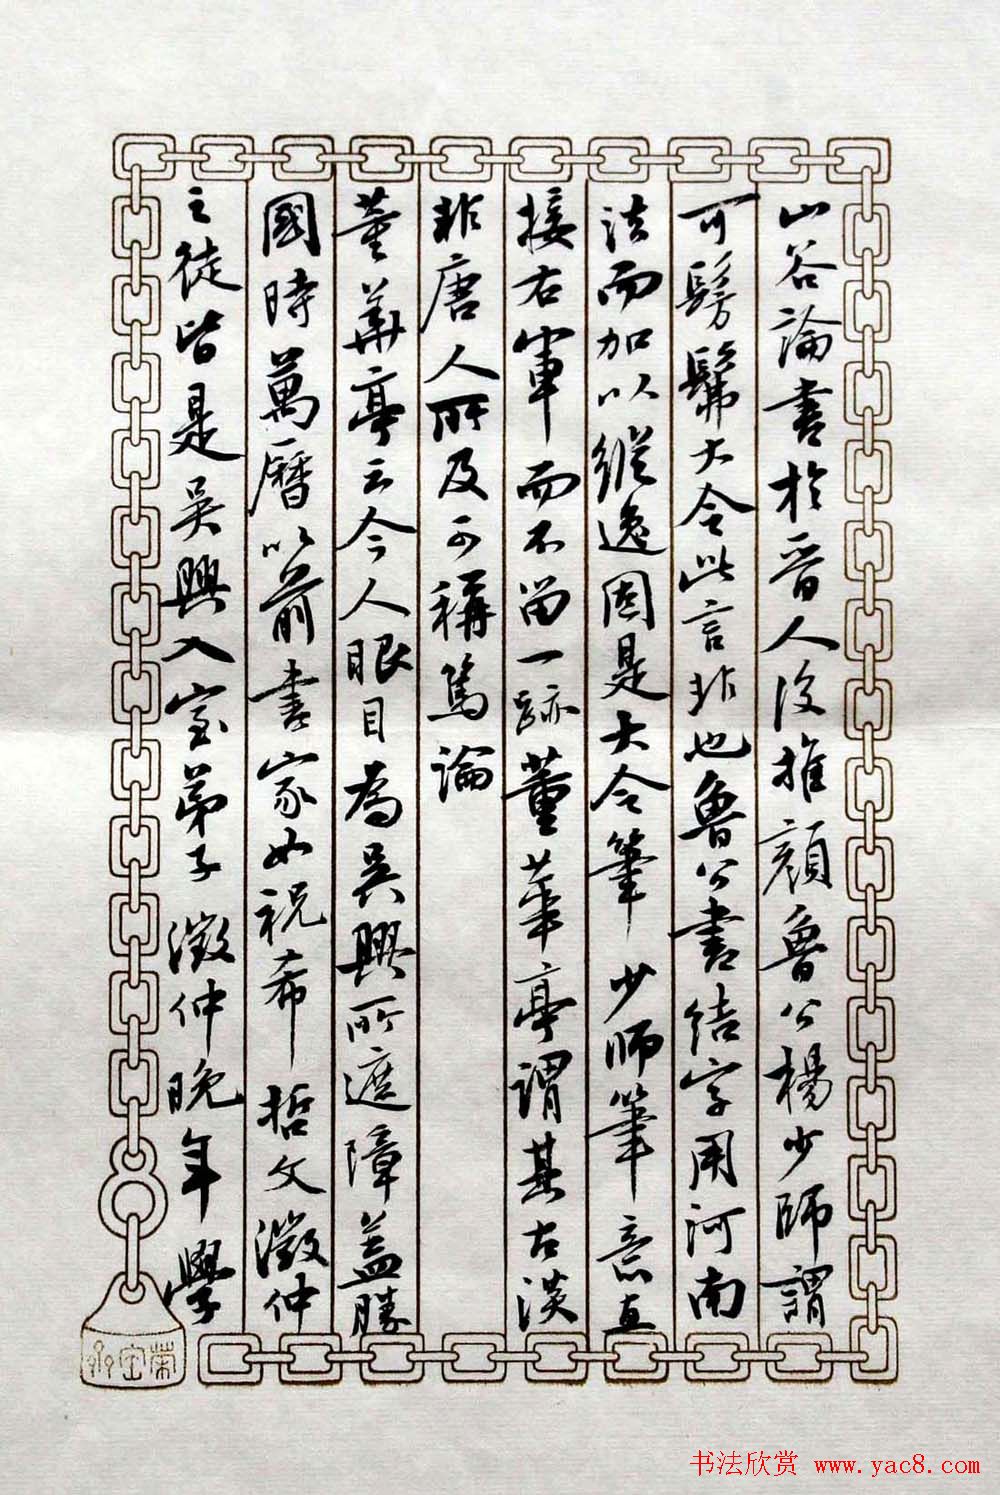 山谷論書於晉人後推顏魯公楊少師謂
可髣髴大令此言非也魯公書結字用河南
法而加以縱逸固是大令筆少師筆意直
接右軍而不留一跡董華亭謂其古淡
非唐人所及可稱篤論
董華亭云今人眼目為吳興所遮障蓋勝
國時萬曆以前書家如祝希哲文徵仲
之徒皆是吳興入室弟子徵仲晚年學
榮宝
书法欣赏 www.yac8.com